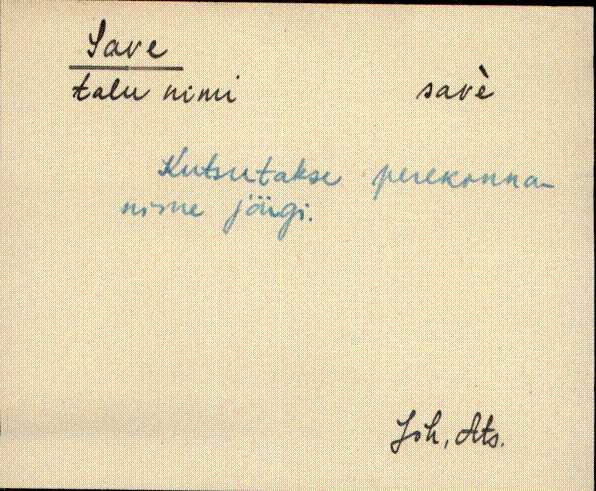 Save
talu nimi savè
Kutsutakse perekonna-
nime järgi.
Jõh, Ats.